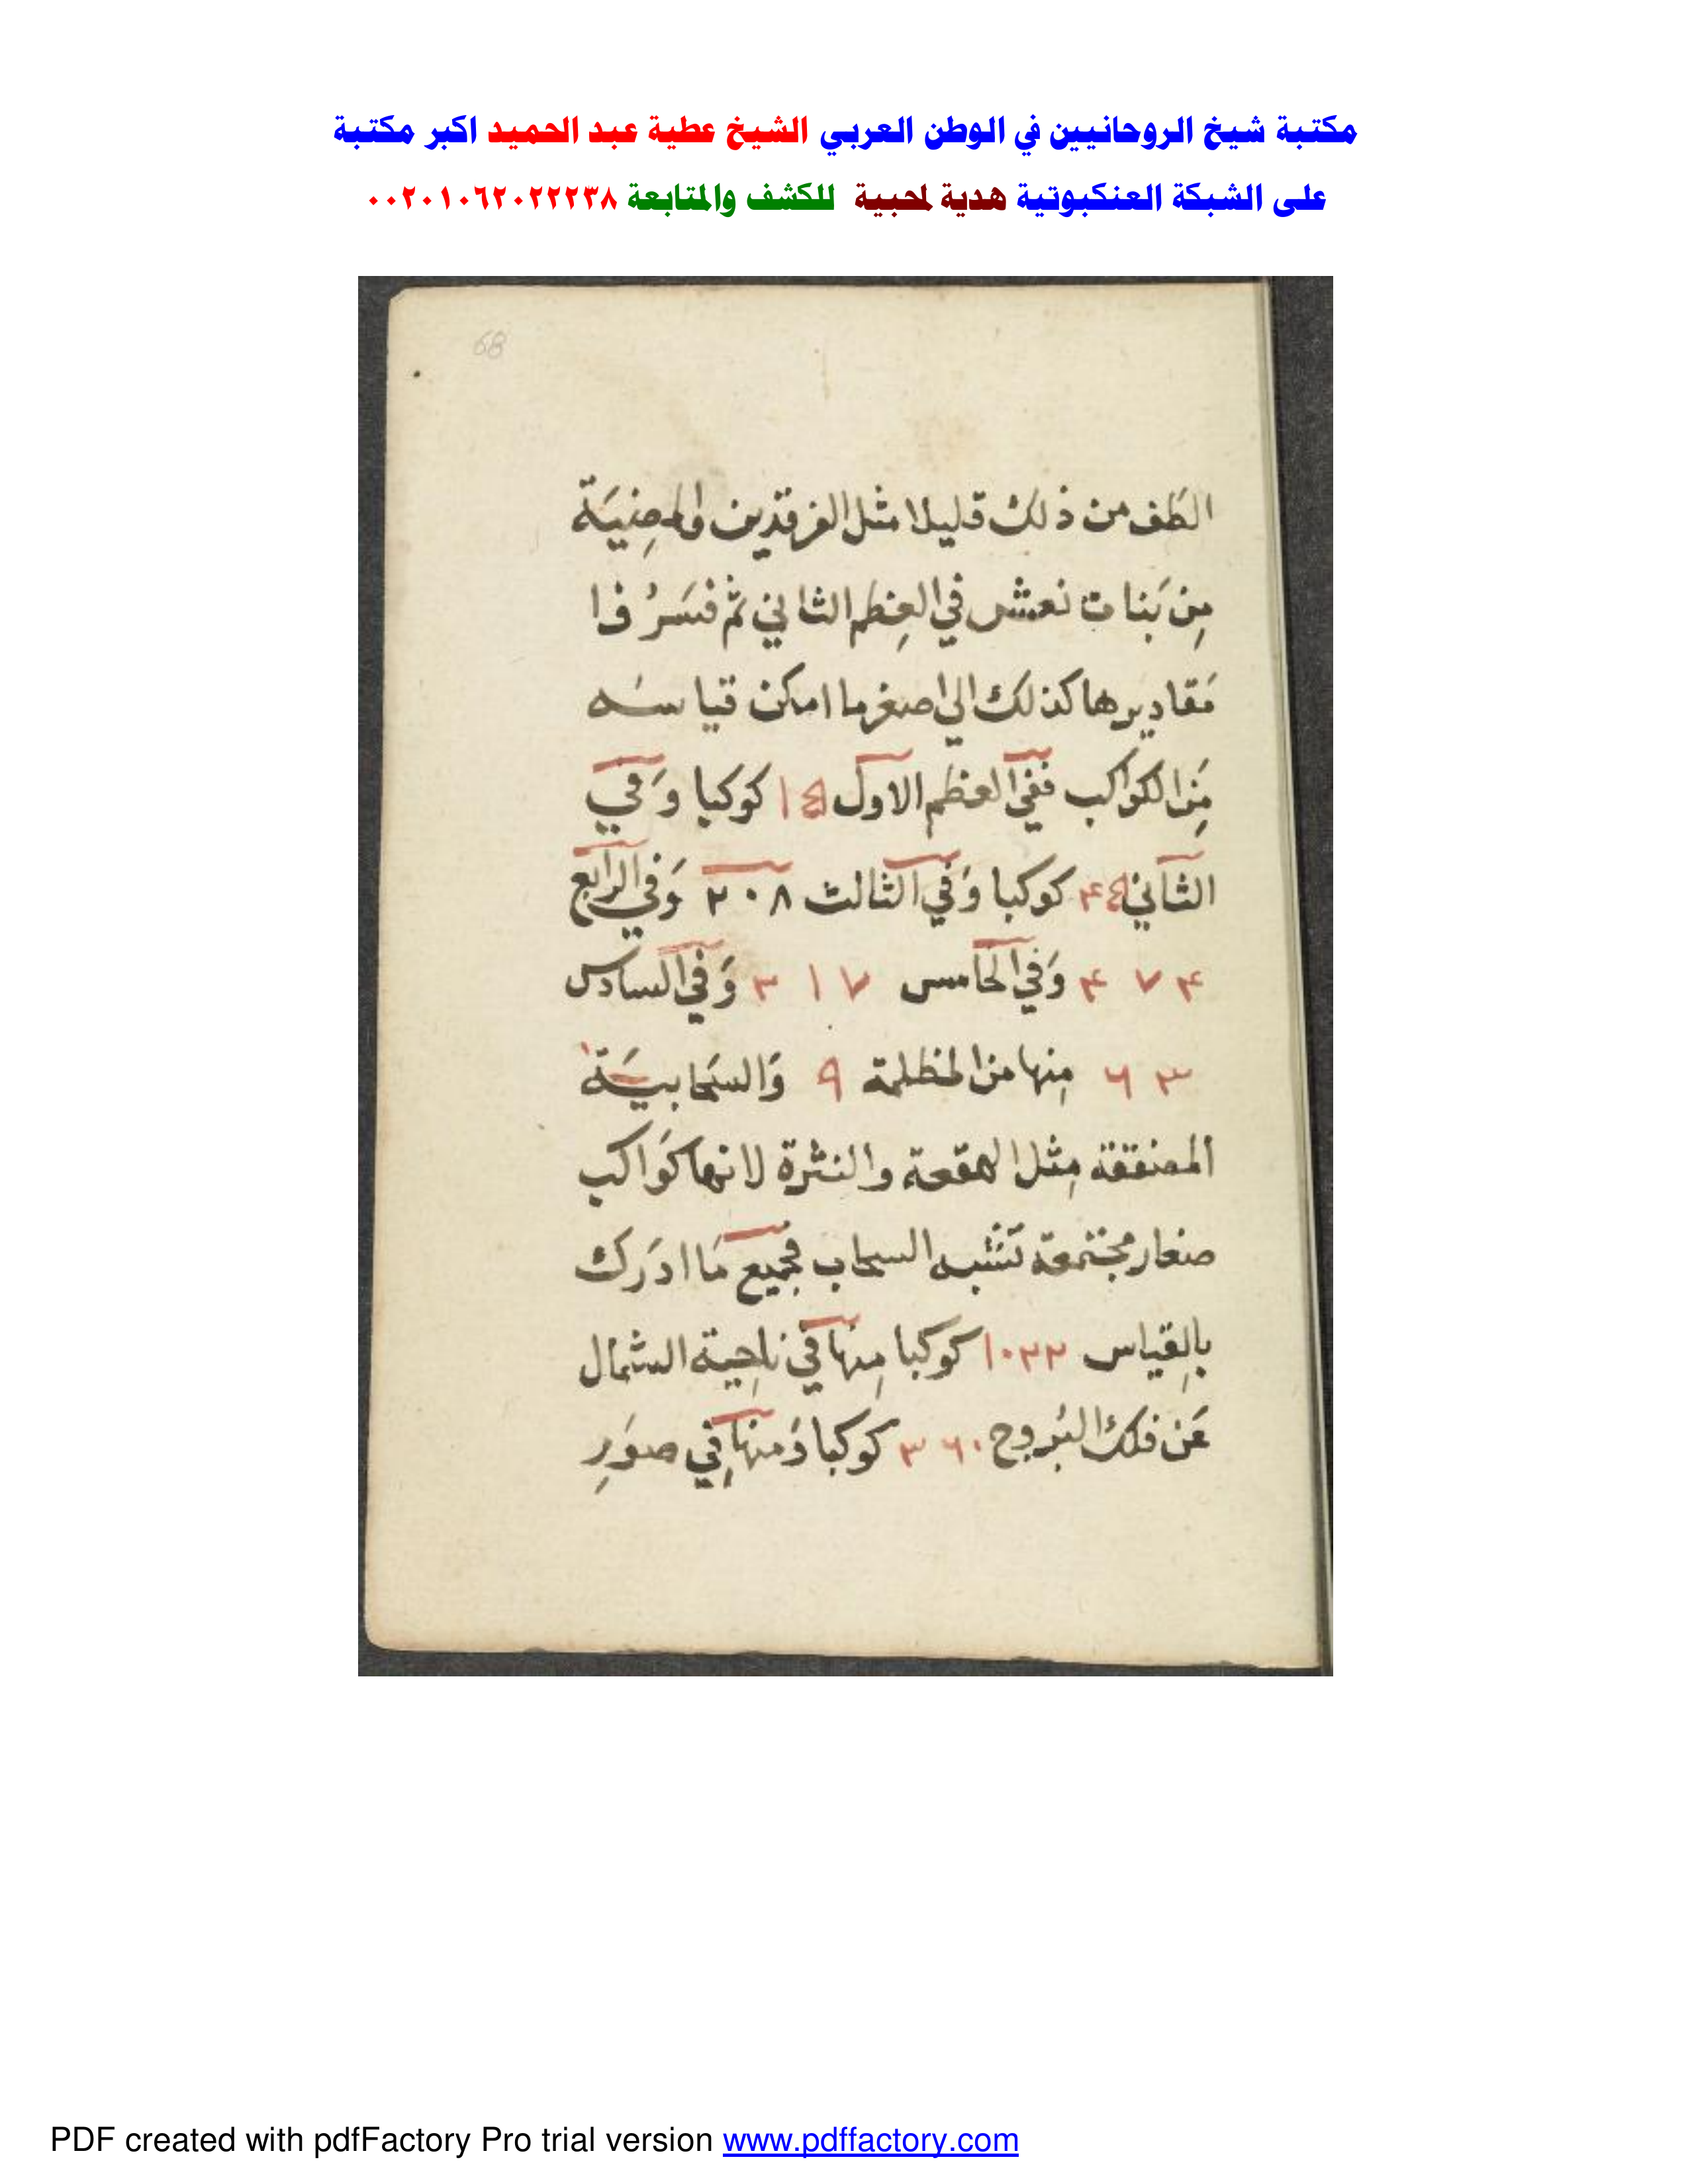 مكتبة شيخ الروحانيين في الوطن العربي الشيخ عطية عبد الحميد اكبر مكتبة
على الشبكة العنكبوتية هدية لمحبية للكشف والمتابعة ٠٠٢٠١٠٦٢٠٢٢٢٣٨
68
الطف من ذلك قليلا مثل الفرقدين والمضيئة
مِن بَنات نعش في العِظم الثاني ثم فسَرُوا
مَقاديرها كذلك الي اصغر ما امكن قياسه
مِن الكواكب ففي العظم الاول ١٤ كوكبا وَفي
الثاني ٤٤ كوكبا وَفي الثالث ٢٠٨ وَفي الرابع
٤٧٤ وَفي الخامس ٢١٧ وَفي السادس
٦٣ مِنها من المظلمة ٩ وَالسَحابيَة
المضفقة مِثل الهقعة والنثرة لانها كوَاكب
صغار مجتمعة تشبه السحاب فجميع مَا ادرَك
بالقياس ١٠٢٢ كوكبا مِنها في ناحِية الشمال
عَن فلك البُروج ٣٦٠ كوكبا وَمنها في صوَرِ
PDF created with pdfFactory Pro trial version www.pdffactory.com